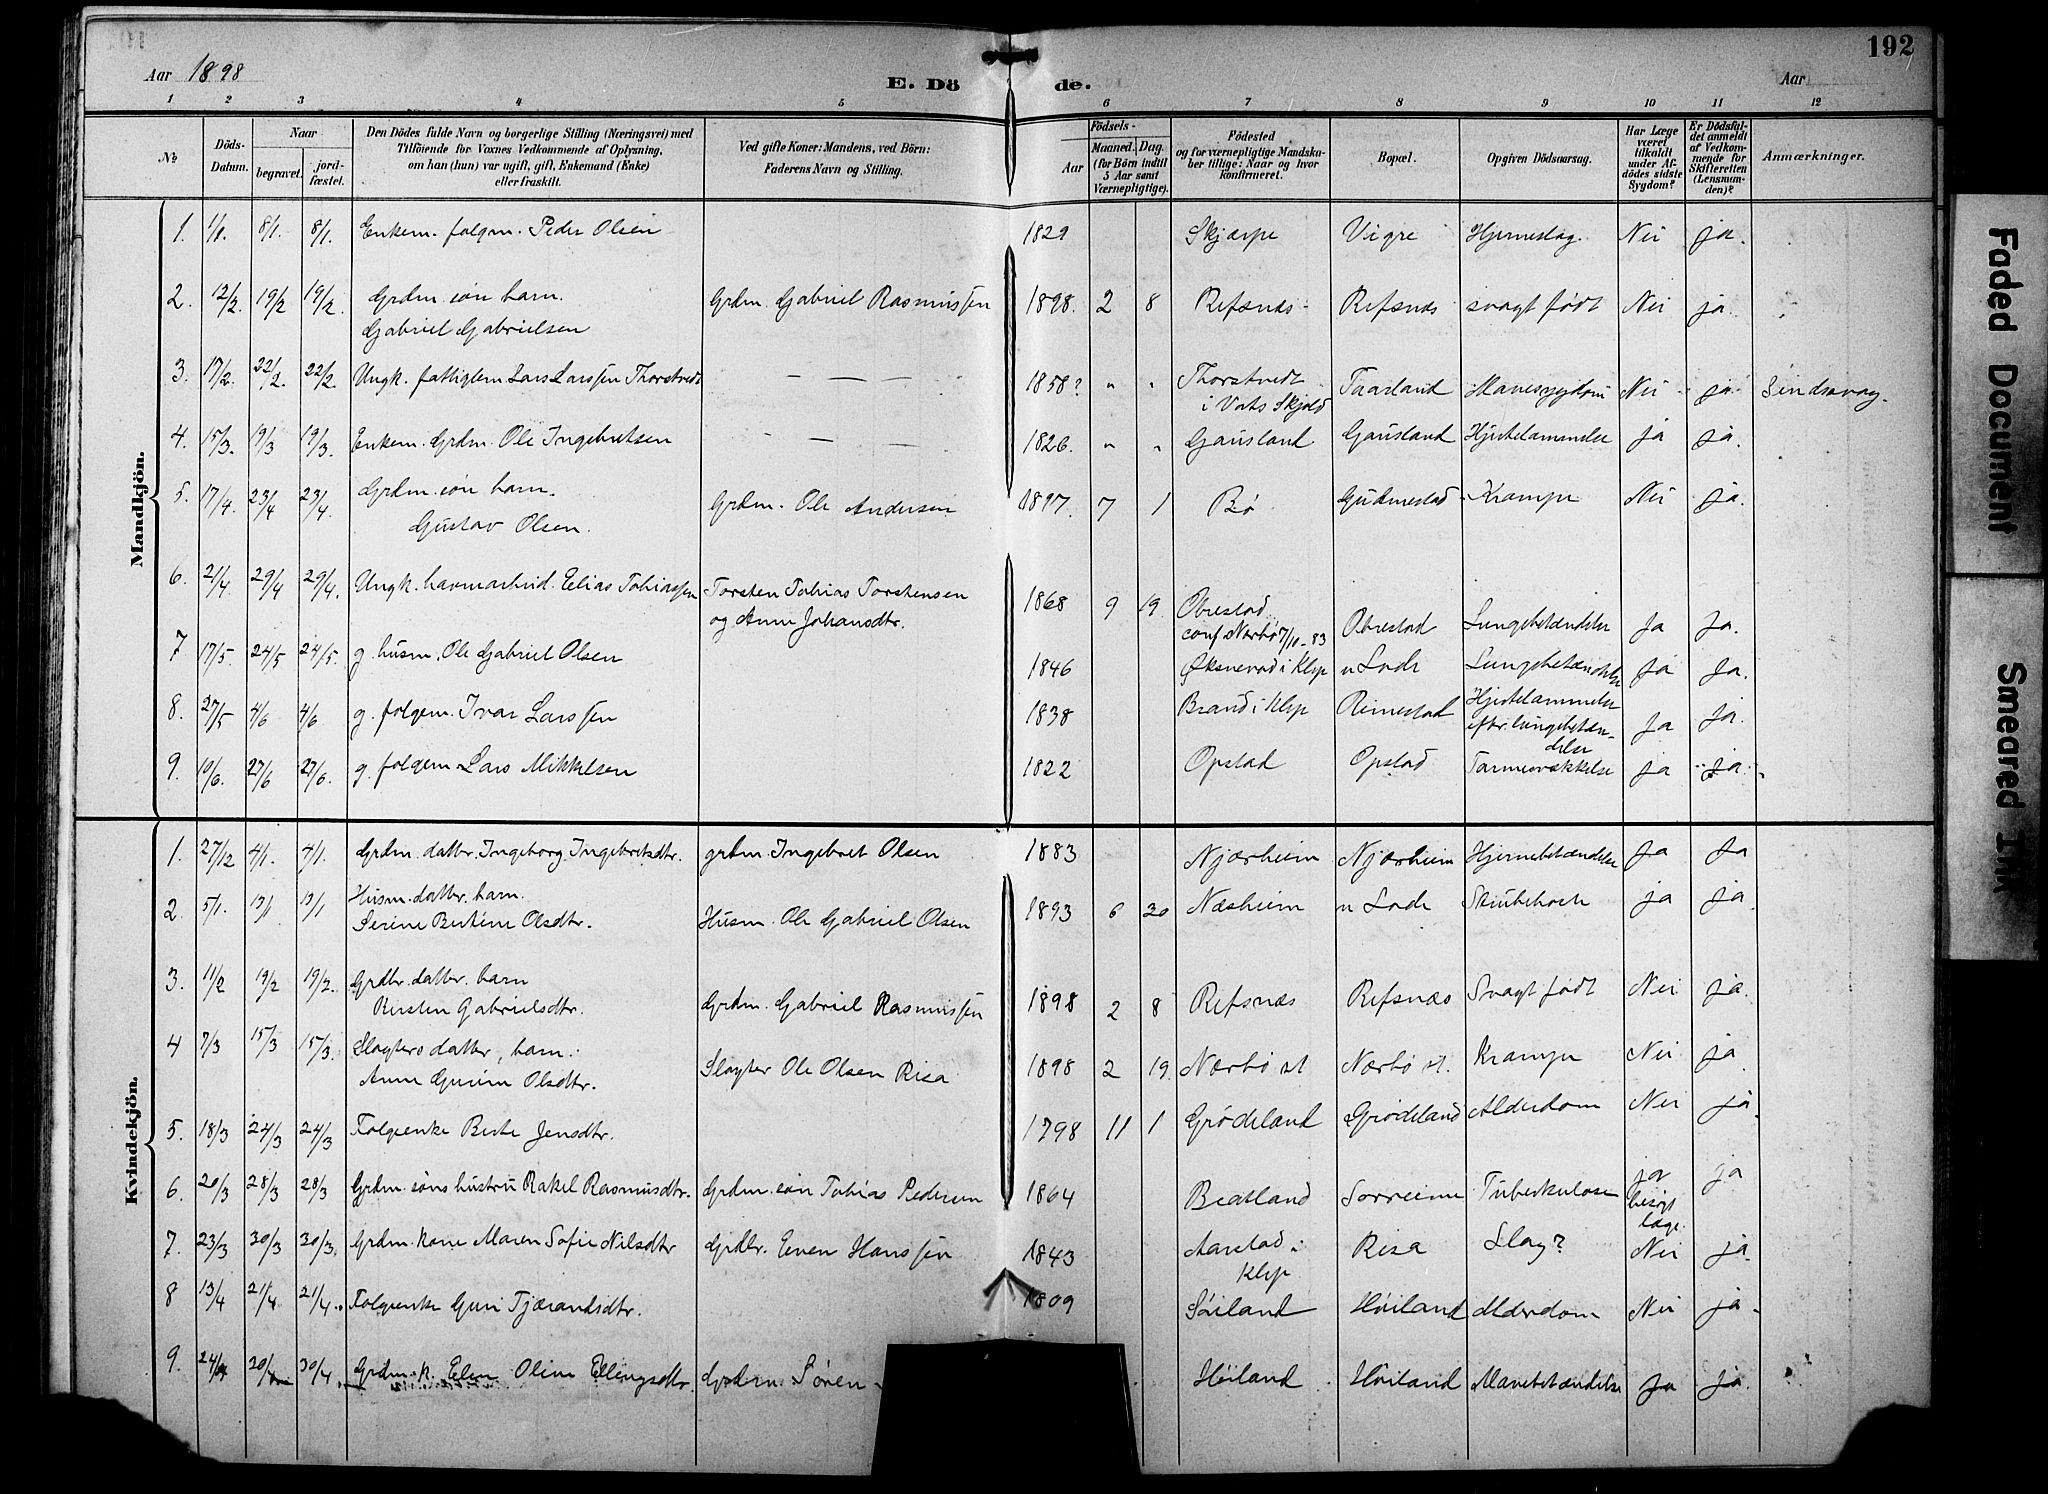 192
Aar 1898
E. Dö de.
Aar
1 2 3 4 5 6 7 8 9 10 11 12
№
Döds-Datum.
Naar
begravet.
jordfæstet.
Den Dödes fulde Navn og borgerlige Stilling (Næringsvei) med
Tilföiende for Voxnes Vedkommende af Oplysning,
om han (hun) var ugift, gift, Enkemand (Enke)
eller fraskilt.
Ved gifte Koner: Mandens, ved Börn:
Faderens Navn og Stilling.
Födsels-
Aar
Maaned. Dag.
(for Börn indtil
5 Aar samt
Værnepligtige).
Födested
og for værnepligtige Mandska-
ber tillige: Naar og hvor
konfirmeret.
Bopæl.
Opgiven Dödsaarsag.
Har Læge
været
tilkaldt
under Af-
dödes sidste
Sygdom?
Er Dödsfal-
det anmeldt
af Vedkom-
mende for
Skifteretten
(Lensman-
den)?
Anmærkninger.
Mandkjön.
1. 1/1. 8/1. 8/1. Enkem. folgm. Peder Olsen 1829 Skjærpe Vigre Hjerneslag. Nei ja.
2. 12/2. 19/2 19/2. Grdm. søn barn. Grdm. Gabriel Rasmussen 1898. 2 8 Refsnæs Refsnæs svagt født Nei ja
Gabriel Gabrielsen
3. 17/2. 22/2. 22/2 Ungk. fattiglem Lars Larssen Thorstvedt — — — 1858? " " Thorstvedt Taarland Mavesygdom Nei ja Sindssvag.
i Vats Skjold
4. 15/3. 19/3 19/3. Enkem. Grdm. Ole Ingebretsen — — — 1826. " " Gausland Gausland Hjertelammelse ja ja.
5. 17/4. 23/4 23/4. Grdm. søn barn. Grdm. Ole Andersen 1897. 7 1 Bø Gudmestad Krampe Nei ja.
Gustav Olsen.
6. 21/4. 29/4 29/4. Ungk. havnearbeid. Elias Tobiassen Torsten Tobias Torstensen 1868 9 19. Obrestad Obrestad Lungebetændelse Ja Ja.
og Anne Johansdtr. conf. Nærbø 7/10-83
7 17/5. 24/5 24/5. g. husm. Ole Gabriel Olsen 1846 Øksnevad i Klep n Lode Lungebetændelse Ja Ja.
8. 27/5 4/6 4/6 g. folgem. Ivar Larssen 1838 Brand i Klep Rimestad Hjertelammelse Ja Ja.
eftr. lungebetæn-
delse
9. 19/6. 27/6 27/6. g. folgem. Lars Mikkelsen 1822 Opstad Opstad Tarmesvækkelse ja ja.
Kvindekjön.
1. 27/12 4/1. 4/1. Grdm. datter Ingeborg Ingebretsdtr. grdm. Ingebret Olsen 1883 Njærheim Njærheim Hjernebetændelse Ja Ja
2. 5/1. 13/1 13/1 Husm. datter. barn. Husm. Ole Gabriel Olsen 1893 6 30 Næsheim n Lode Strubehoste ja ja.
Serine Bertine Olsdtr.
3. 11/2 19/2 19/2. Grdbr. datter. barn Grdm. Gabriel Rasmussen 1898 2 8 Refsnæs Refsnæs Svagt født Nei ja.
Kirsten Gabrielsdtr.
4 7/3 15/3 15/3. Slagters datter, barn. Slagter Ole Olsen Risa 1898 2 19. Nærbø st Nærbø st. Krampe Nei ja
Anne Gurine Olsdtr.
5. 18/3 24/3 24/3 Folgeenke Berte Jensdtr. 1798 11 1 Grødeland Grødeland Alderdom Nei ja.
6. 20/3 28/3 28/3 Grdm. søns hustru Rakel Rasmusdtr. Grdm. søn Tobias Pedersen 1864 Bratland Sørreime Tuberkulose ja ja
besøgt
læge.
7. 23/3 30/3 30/3. Grdm. kone Maren Sofie Nilsdtr Grdbr. Even Hanssen 1843 Aarstad i Risa Slag? Nei ja.
Klep
8 13/4 21/4 21/4. Folgeenke Guri Tjærandsdtr. 1809 Søiland Høiland Alderdom Nei ja.
9. 24/4 30/4 30/4. Grdm. k. Elen Oline Ellingsdtr. Grdm. Søren Høiland Høiland Mavebetændelse Ja ja.
Faded Document
Smeared Ink